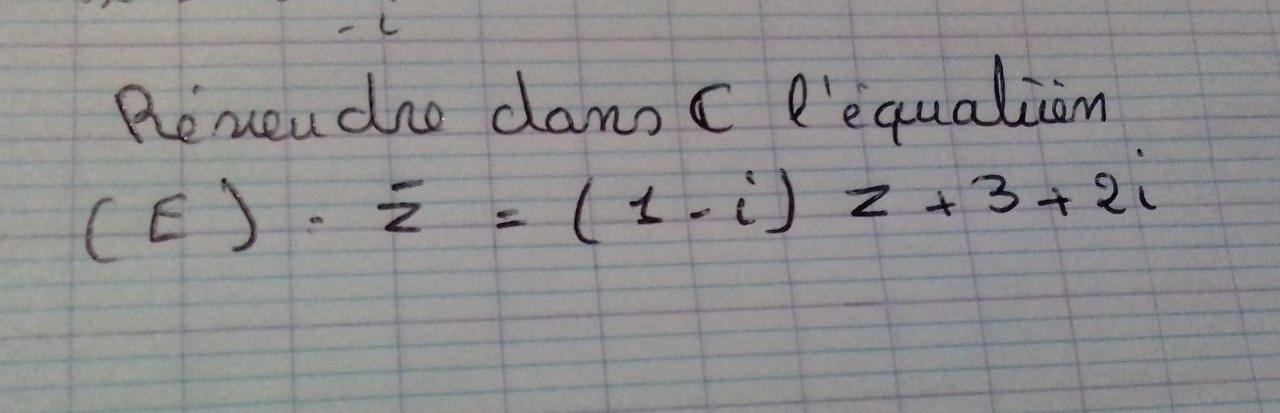 - i
Résoudre dans C l'équation
(E) . z̄ = (1 - i) z + 3 + 2i